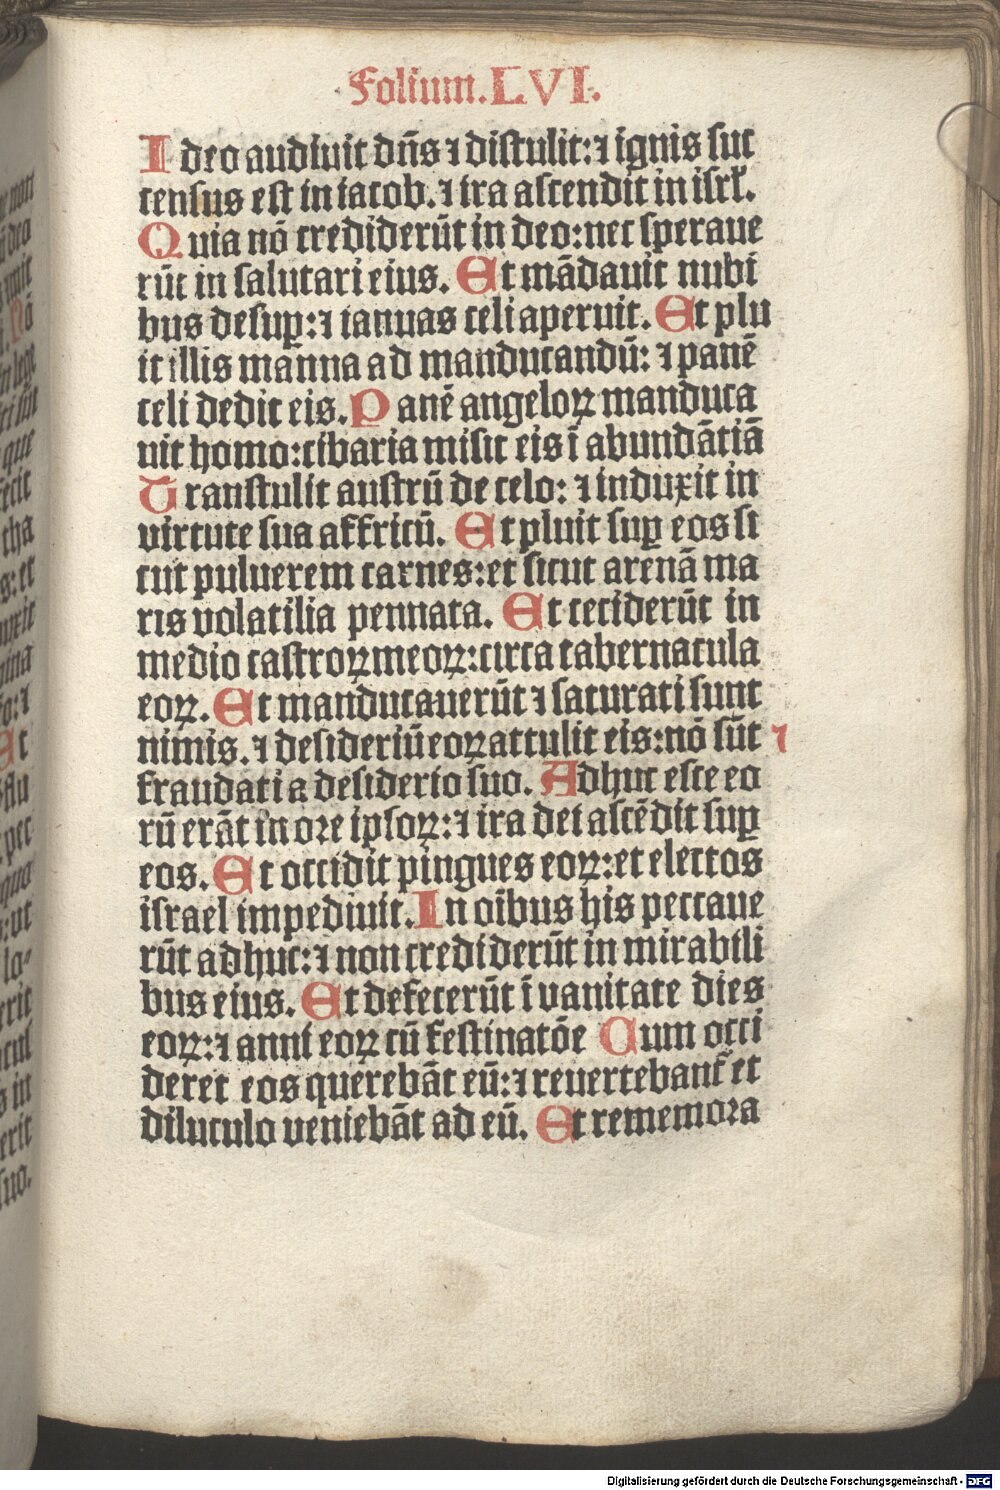 Folium.LVI.
Ideo audiuit dn̄s ⁊ distulit:⁊ ignis suc
census est in iacob.⁊ ira ascendit in isrl̄.
Quia nō crediderūt in deo:nec speraue
rūt in salutari eius. Et mādauit nubi
bus desuꝑ:⁊ ianuas celi aperuit. Et plu
it illis manna ad manducandū: ⁊ panē
celi dedit eis. Panē angeloꝝ manduca
uit homo:cibaria misit eis ī abundātiā
Transtulit austrū de celo: ⁊ induxit in
virtute sua affricū. Et pluit suꝑ eos si
cut puluerem carnes:et sicut arenā ma
ris volatilia pennata. Et ceciderūt in
medio castroꝝ meoꝝ:circa tabernacula
eoꝝ. Et manducauerūt ⁊ saturati sunt
nimis. ⁊ desideriū eoꝝ attulit eis:nō sūt ⁊
fraudati a desiderio suo. Adhuc esce eo
rū erāt in ore ipsoꝝ:⁊ ira dei ascēdit suꝑ
eos. Et occidit pingues eoꝝ:et electos
israel impediuit. In oībus his peccaue
rūt adhuc:⁊ non crediderūt in mirabili
bus eius. Et defecerūt ī vanitate dies
eoꝝ:⁊ anni eoꝝ cū festinatōe Cum occi
deret eos querebāt eū:⁊ reuertebant̄ et
diluculo veniebāt ad eū. Et rememora
Digitalisierung gefördert durch die Deutsche Forschungsgemeinschaft - DFG